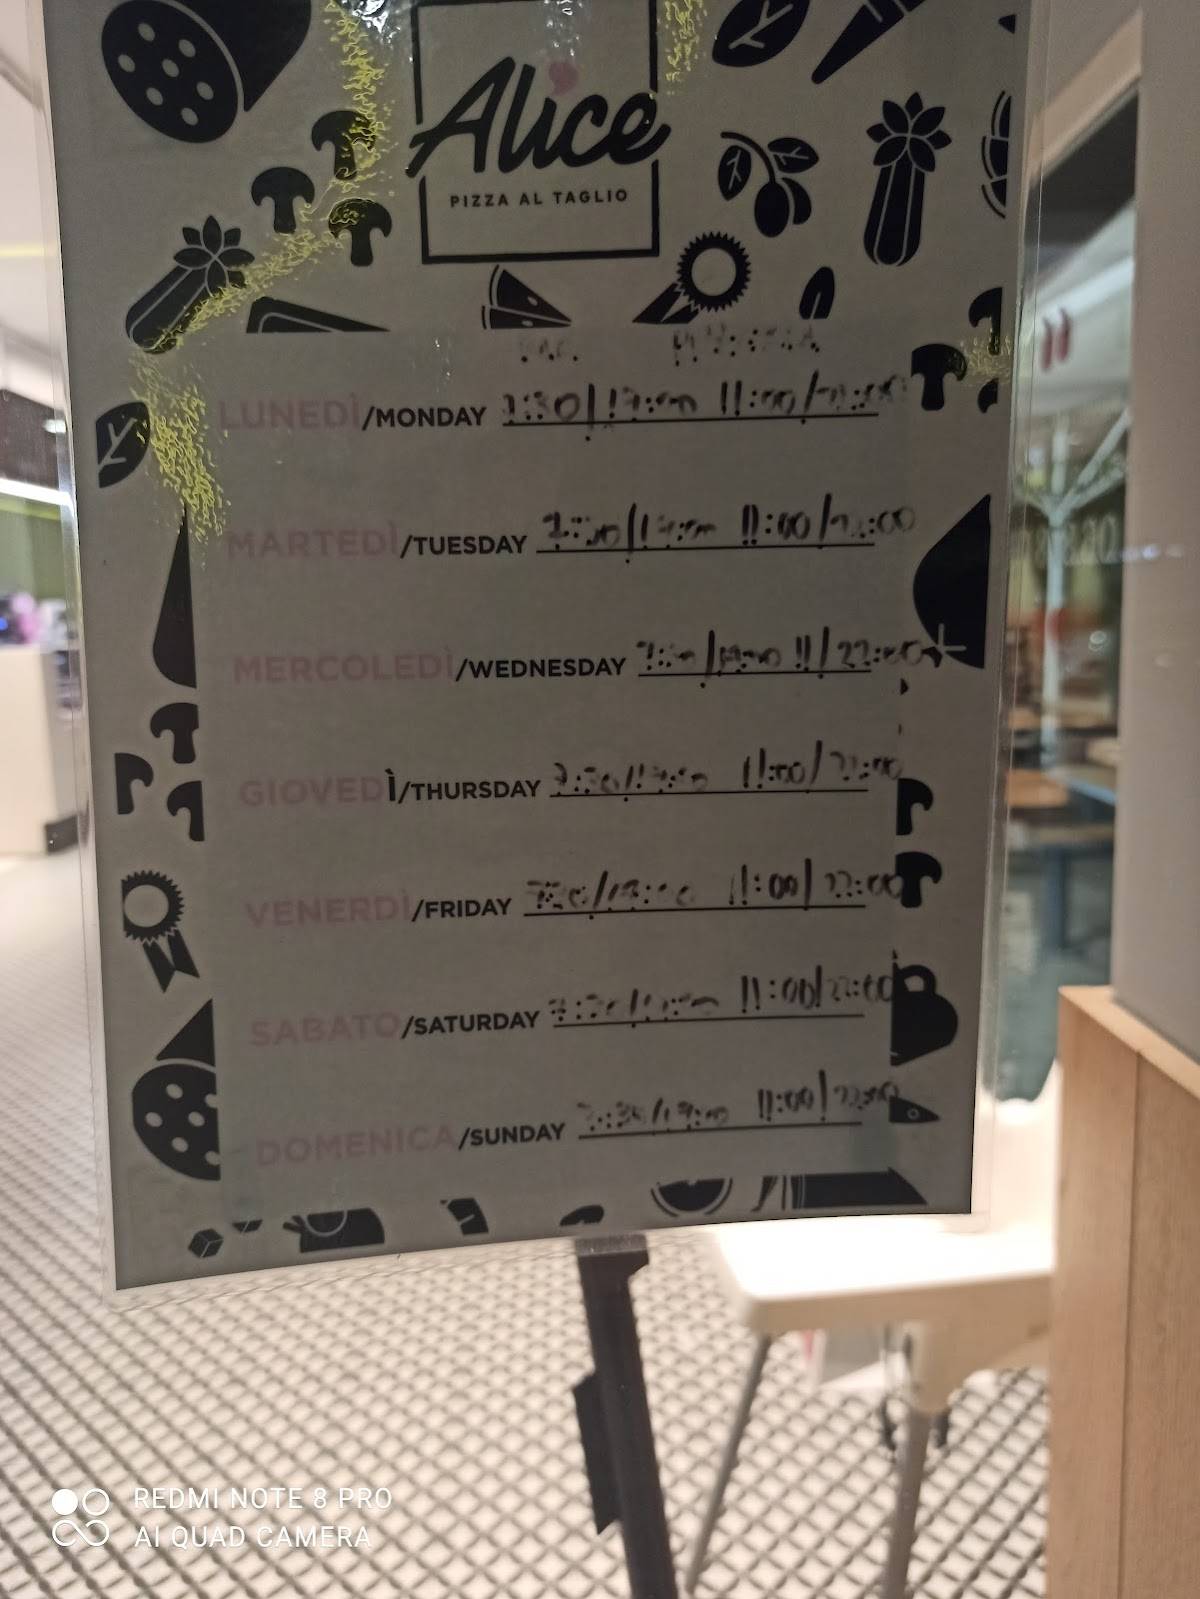 Alice
PIZZA AL TAGLIO
BAR PIZZERIA
LUNEDÌ/MONDAY 7:30/17:00 11:00/22:00
MARTEDÌ/TUESDAY 7:30/17:00 11:00/22:00
MERCOLEDÌ/WEDNESDAY 7:30/17:00 11/22:00
GIOVEDÌ/THURSDAY 7:30/17:00 11:00/22:00
VENERDÌ/FRIDAY 11:00/22:00
SABATO/SATURDAY 7:30/17:00 11:00/22:00
DOMENICA/SUNDAY 7:30/17:00 11:00/22:00
REDMI NOTE 8 PRO
AI QUAD CAMERA